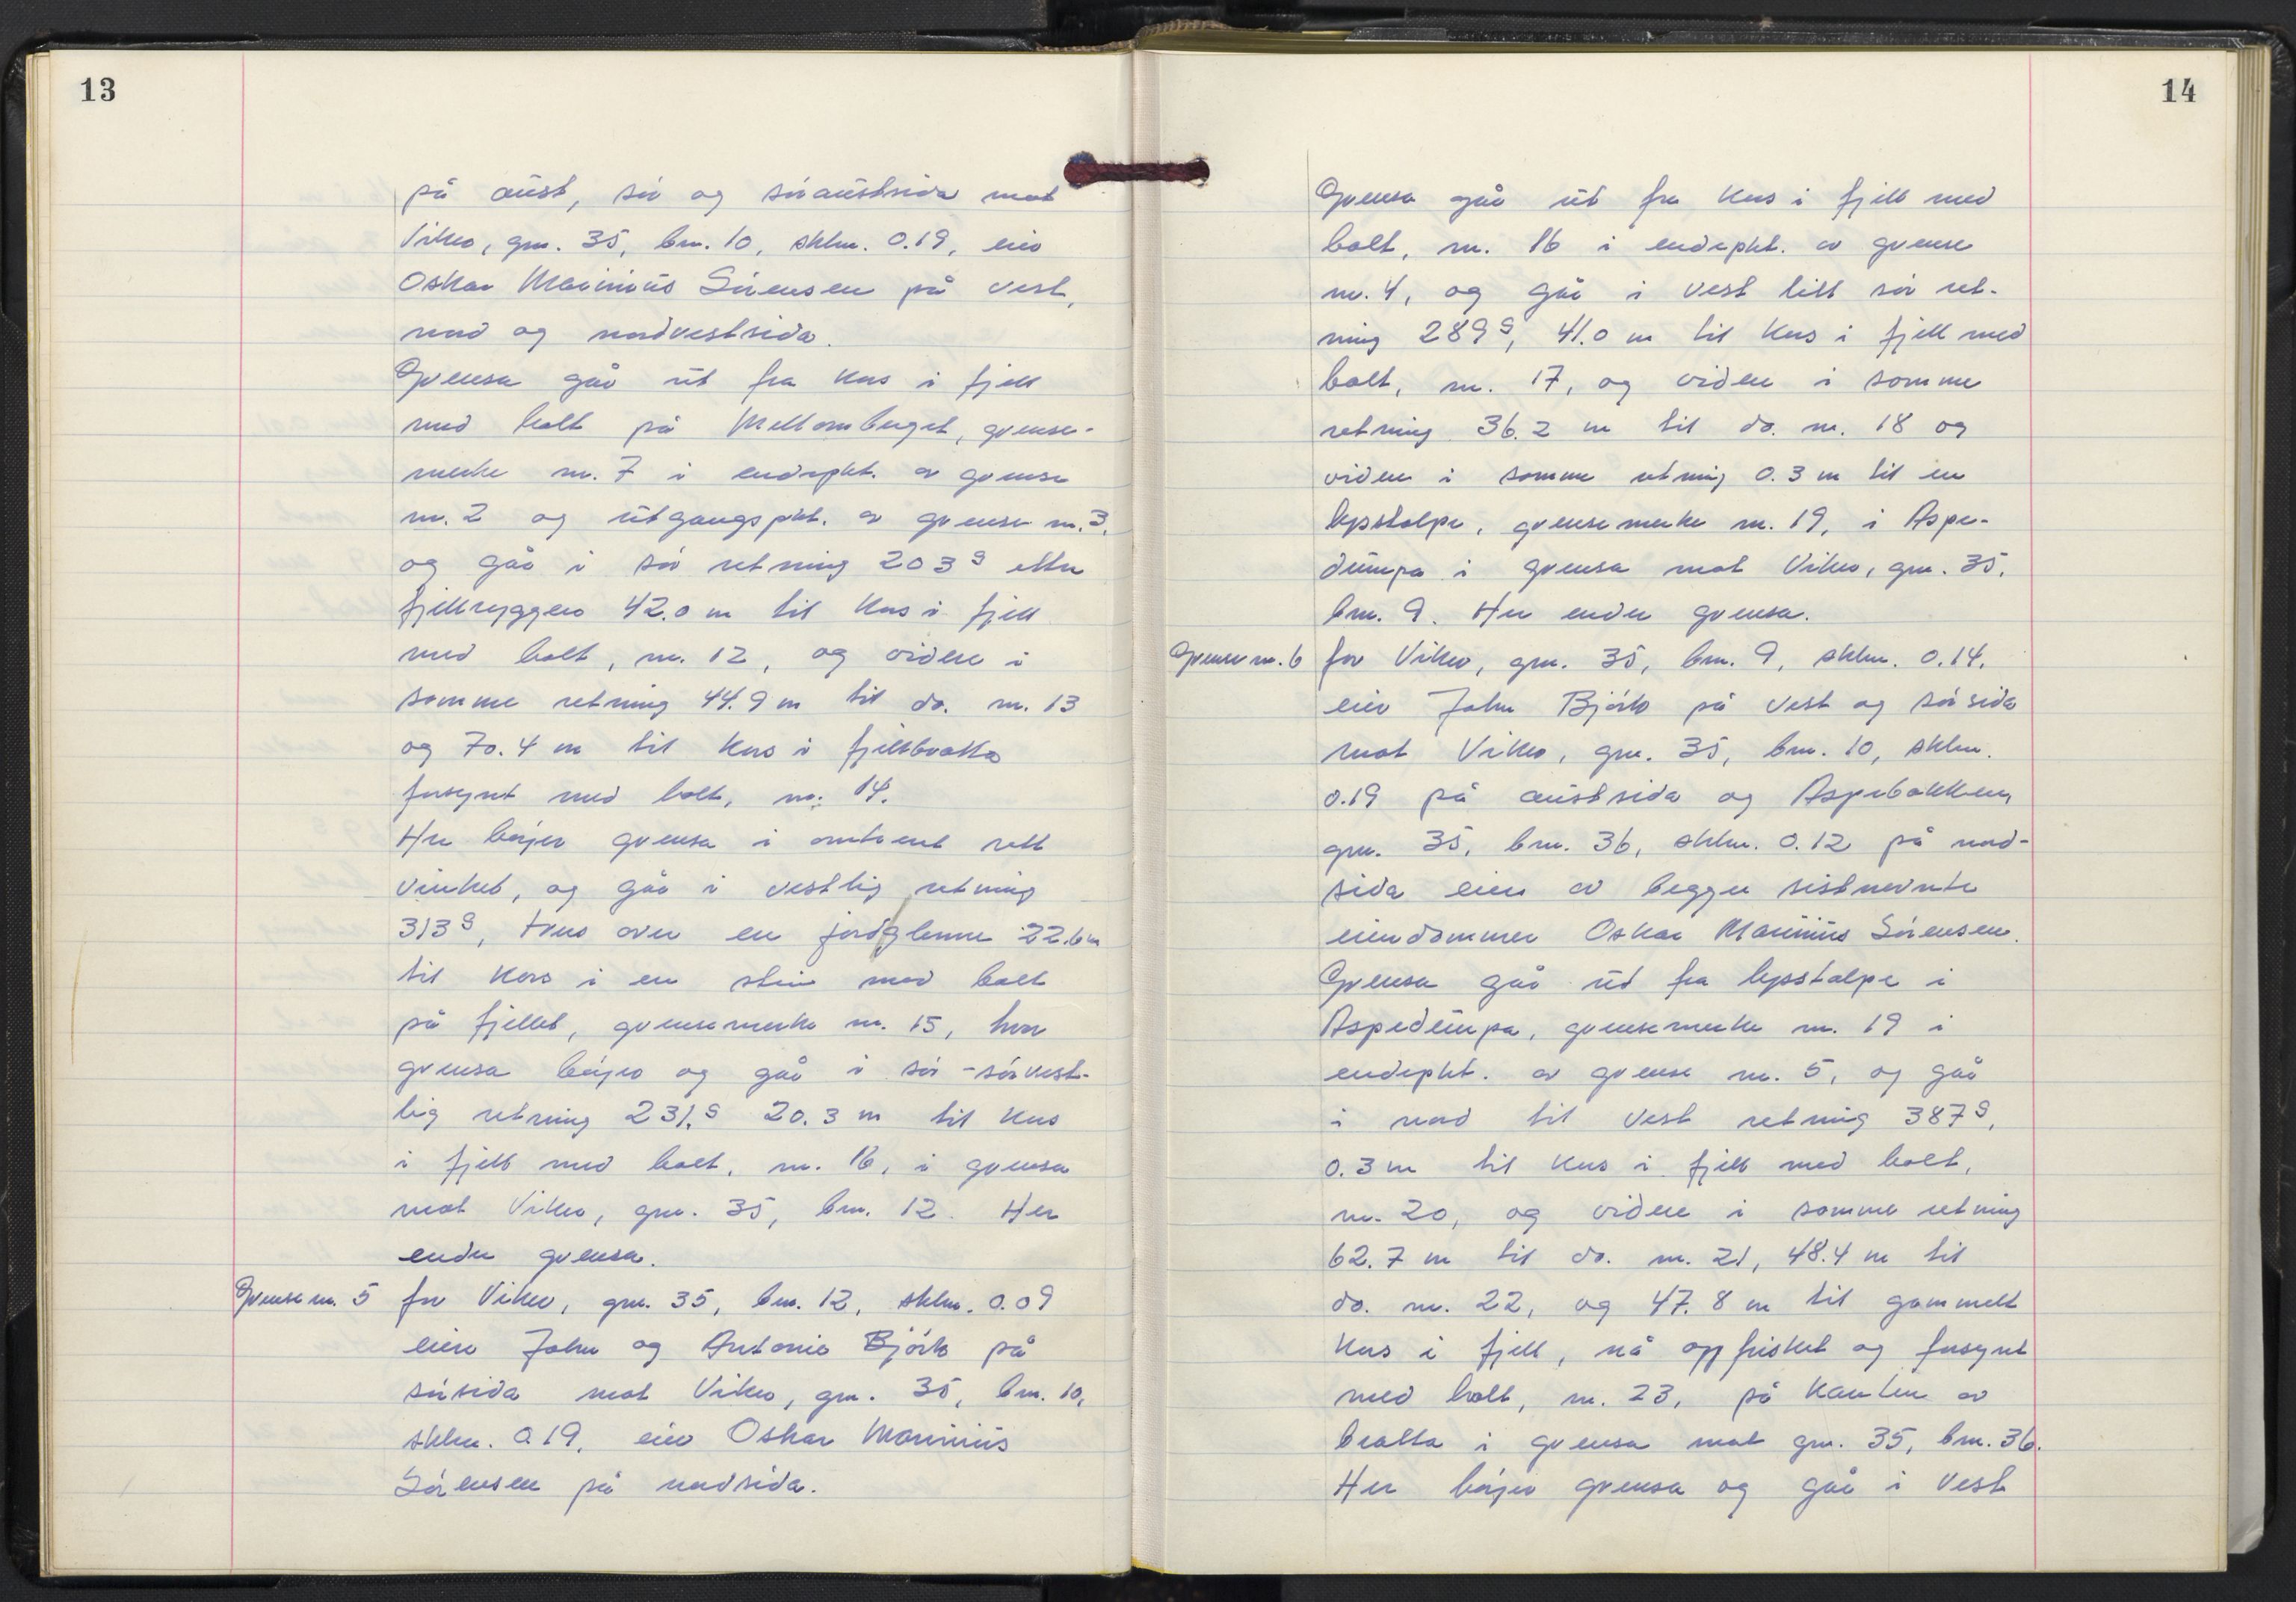 13
på aust, sør og søraustsida mot
Viken, gnr. 35, bnr. 10, skm. 0.19, eier
Oskar Marinius Sørensen på vest,
nord og nordvestsida.
Grensa går ut fra kors i fjell
med bolt på Mellomberget, grense-
merke nr. 7 i endepkt. av grense
nr. 2 og utgangspkt. av grense nr. 3,
og går i sør retning 203 g etter
fjellryggen 42.0 m til kors i fjell
med bolt, nr. 12, og videre i
samme retning 44.9 m til do. nr. 13
og 70.4 m til kors i fjellbratta
forsynt med bolt, nr. 14.
Her bøyer grensa i omtrent rett
vinkel, og går i vestlig retning
313 g, tvers over en jordglenne 22.6 m
til kors i en stein med bolt
på fjellet, grensemerke nr. 15, hvor
grensa bøyer og går i sør-sørvest-
lig retning 231. g 20.3 m til kors
i fjell med bolt, nr. 16, i grensa
mot Viken, gnr. 35, bnr. 12. Her
ender grensa.
Grense nr. 5 for Viken, gnr. 35, bnr. 12, skm. 0.09
eiere John og Antonie Bjørk på
sørsida mot Viken, gnr. 35, bnr. 10,
skm. 0.19, eier Oskar Marinius
Sørensen på nordsida.
14
Grensa går ut fra kors i fjell med
bolt, nr. 16 i endepkt. av grense
nr. 4, og går i vest litt sør ret-
ning 289 g, 41.0 m til kors i fjell med
bolt, nr. 17, og videre i samme
retning 36.2 m til do. nr. 18 og
videre i samme retning 0.3 m til en
lysstolpe, grensemerke nr. 19, i Aspe-
dumpa i grensa mot Viken, gnr. 35,
bnr. 9. Her ender grensa.
Grense nr. 6 for Viken, gnr. 35, bnr. 9, skm. 0.14,
eier John Bjørk på vest og sørsida
mot Viken, gnr. 35, bnr. 10, skm.
0.19 på austsida og Aspebakken,
gnr. 35, bnr. 36, skm. 0.12 på nord-
sida eier av begge sistnevnte
eiendommer Oskar Marinius Sørensen.
Grensa går ut fra lysstolpe i
Aspedumpa, grensemerke nr. 19 i
endepkt. av grense nr. 5, og går
i nord til vest retning 387 g,
0.3 m til kors i fjell med bolt,
nr. 20, og videre i samme retning
62.7 m til do. nr. 21, 48.4 m til
do. nr. 22, og 47.8 m til gammelt
kors i fjell, nå oppfrisket og forsynt
med bolt, nr. 23, på kanten av
bratta i grensa mot gnr. 35, bnr. 36.
Her bøyer grensa og går i vest